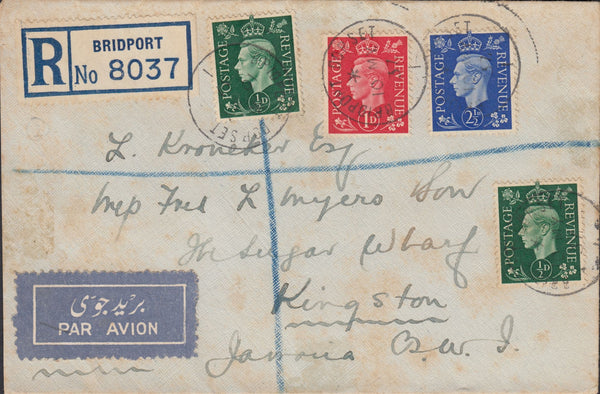 R BRIDPORT
No 8037
POSTAGE REVENUE
½D
POSTAGE REVENUE
1D
POSTAGE REVENUE
2½D
L. Kroneker Esq
Fred L Myers Son
The Sugar Wharf
Kingston
Jamaica B.W.I.
POSTAGE REVENUE
½D
بريد جوى
PAR AVION